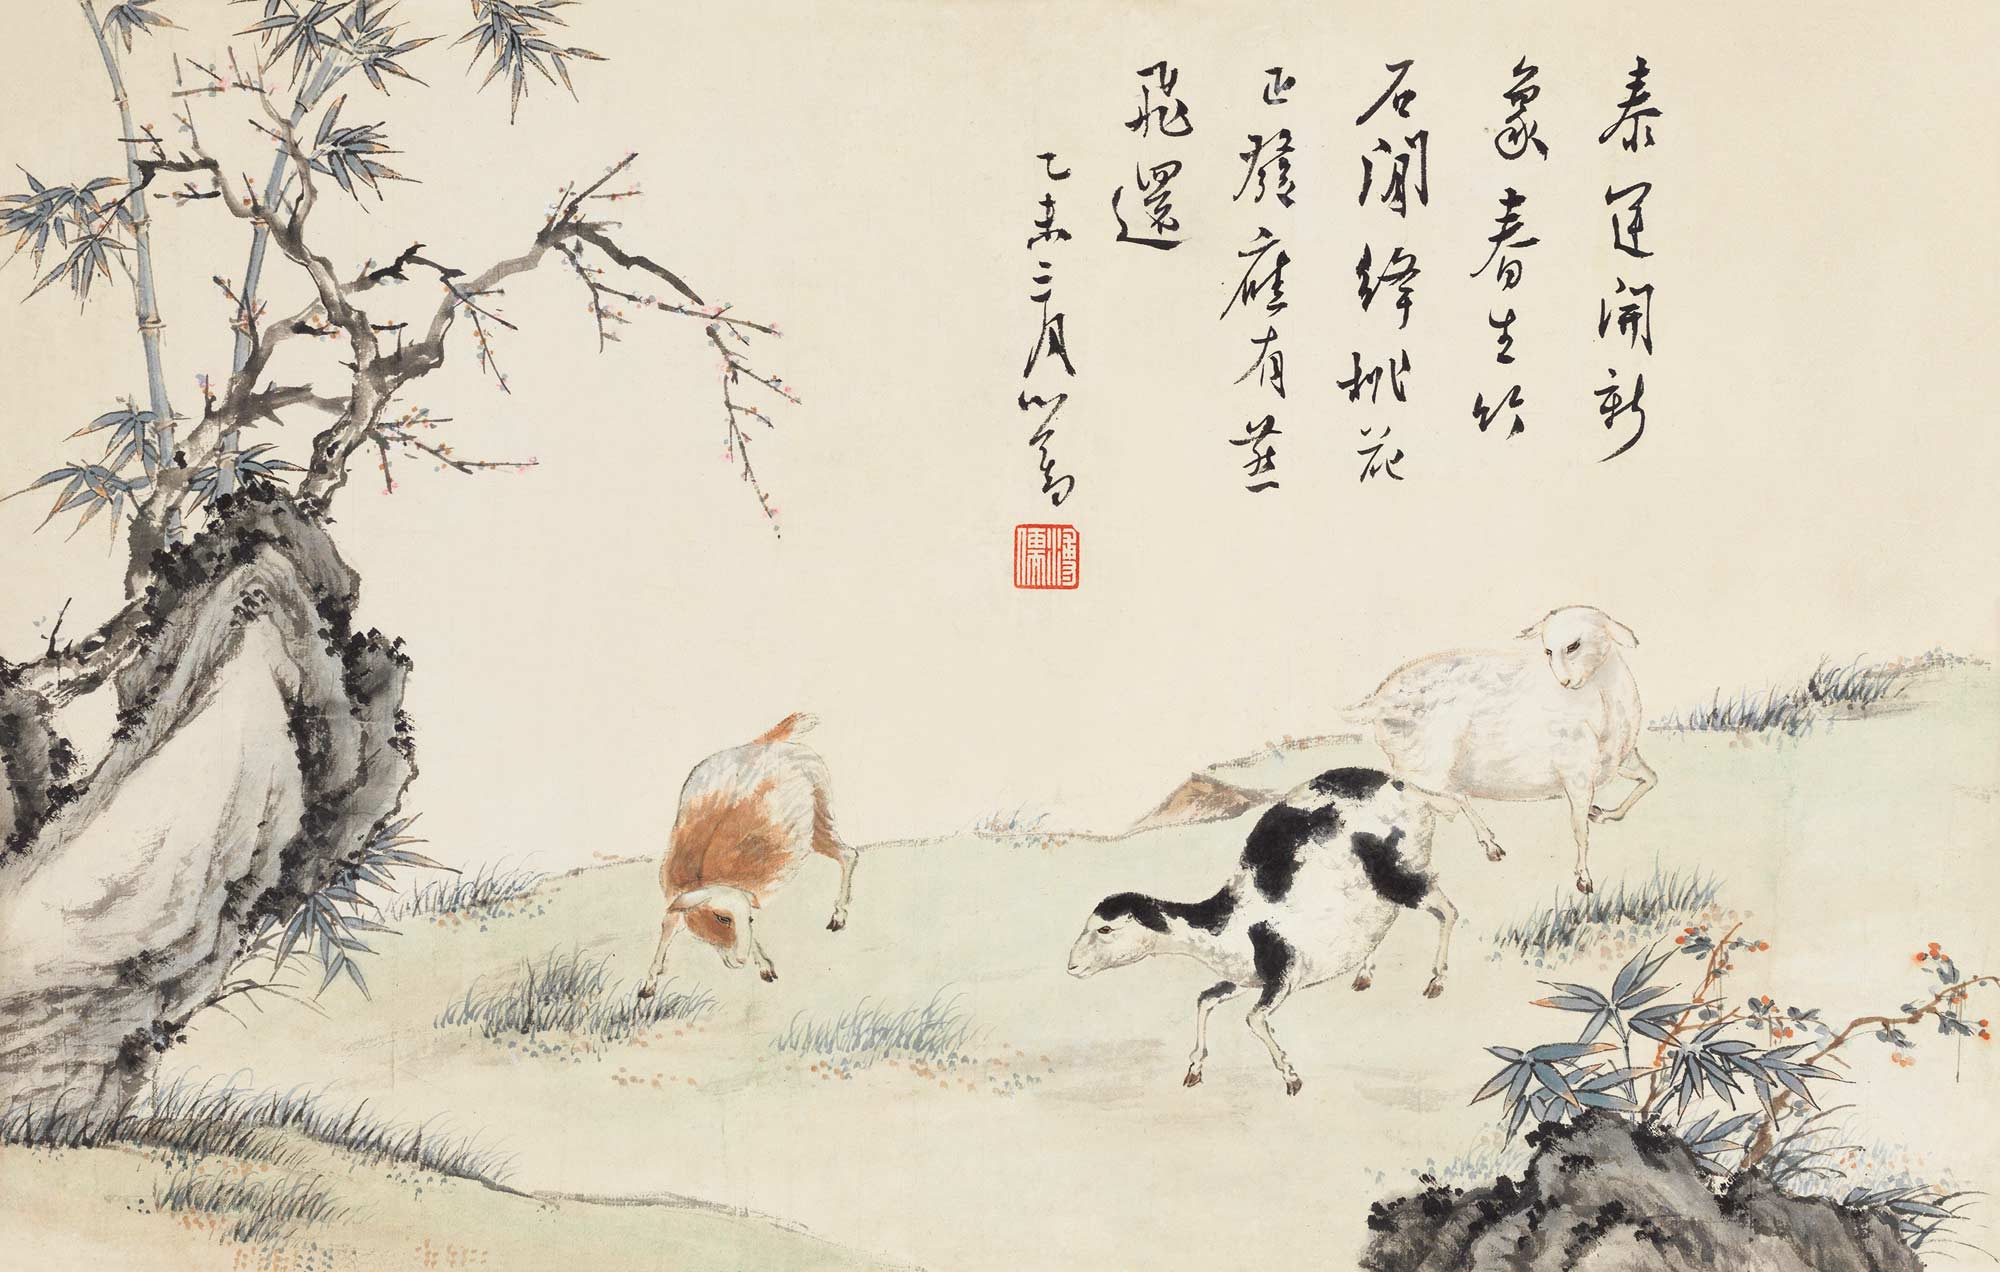 泰運開新
象春生竹
石閒絳桃花
正發應有燕
飛還
乙未三月心畬
溥儒